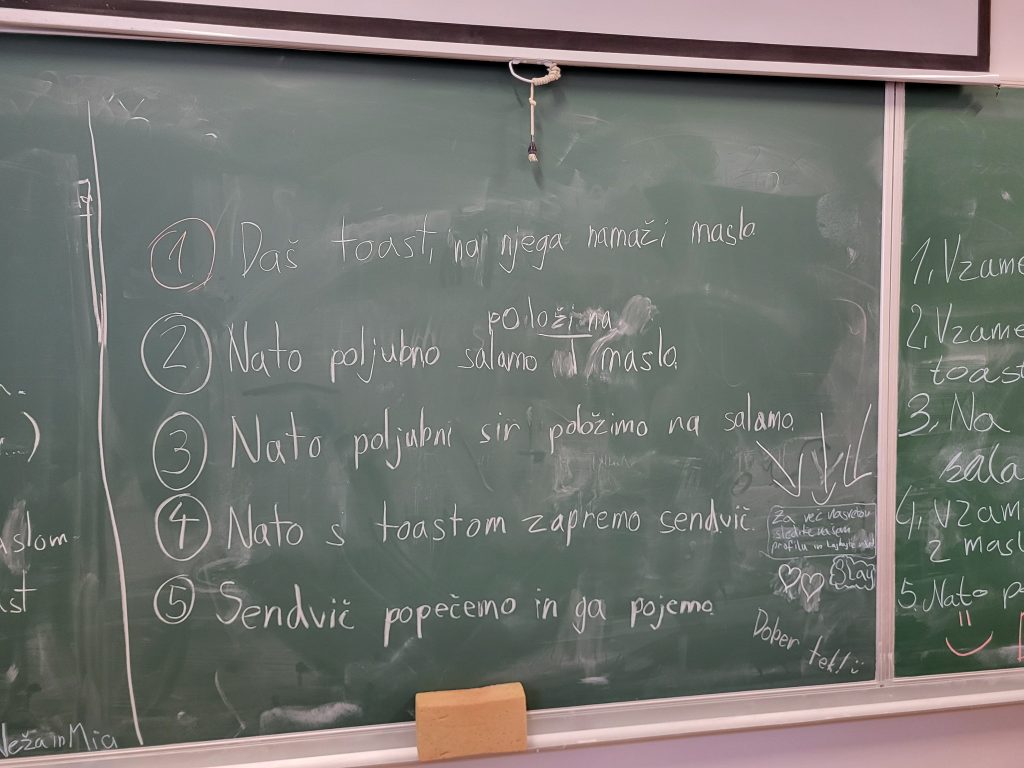 ① Daš toast, na njega namaži maslo
položi na
② Nato poljubno salamo T maslo.
③ Nato poljubni sir položimo na salamo.
④ Nato s toastom zapremo sendvič.
⑤ Sendvič popečemo in ga pojemo.
Za več nasvetov
sledite našem
profilu in
Slay
Dober tek!
Neža in Mia
...)
aslom.
st
1. Vzame
2. Vzame
toast
3. Na
sala
4. Vzam
z masl
5. Nato po